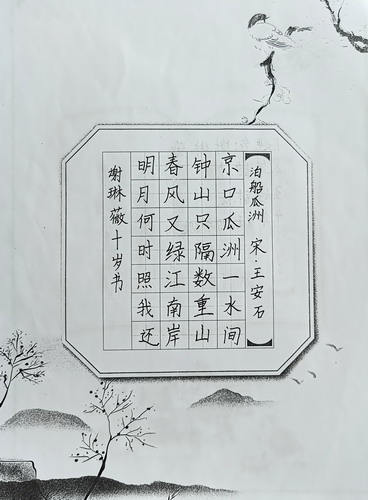 泊船瓜洲 宋·王安石
京口瓜洲一水间
钟山只隔数重山
春风又绿江南岸
明月何时照我还
谢琳薇十岁书